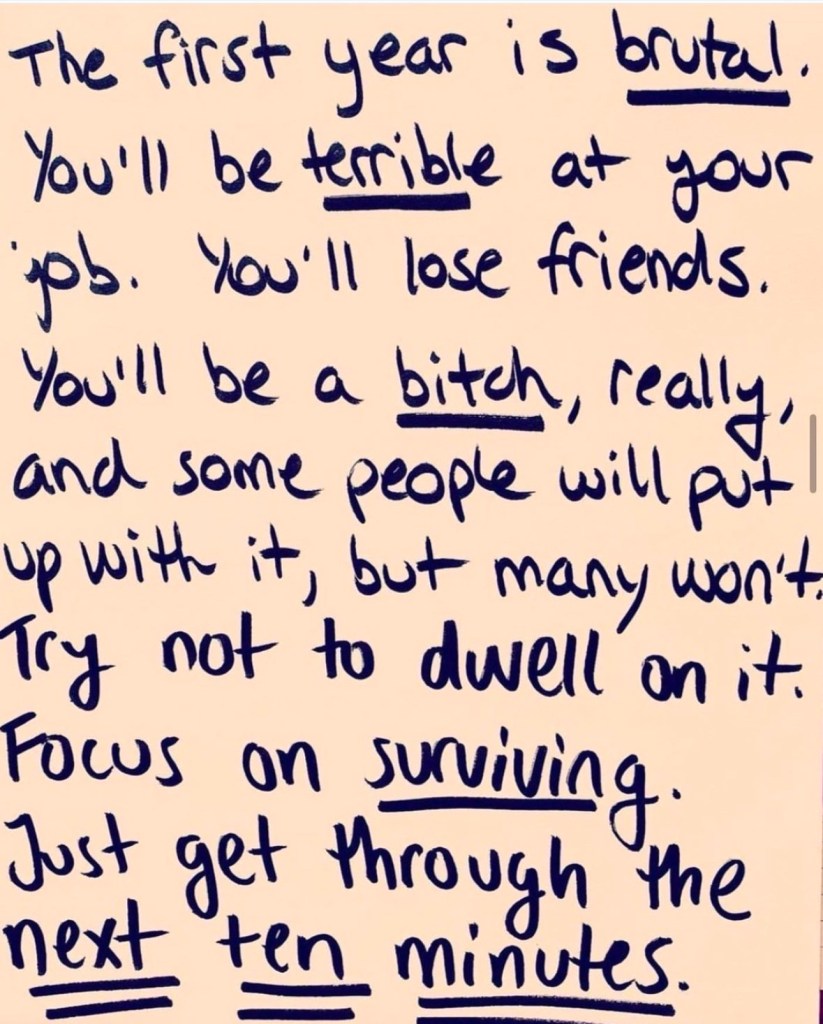 The first year is brutal.
You'll be terrible at your
job. You'll lose friends.
You'll be a bitch, really,
and some people will put
up with it, but many won't.
Try not to dwell on it.
Focus on surviving.
Just get through the
next ten minutes.